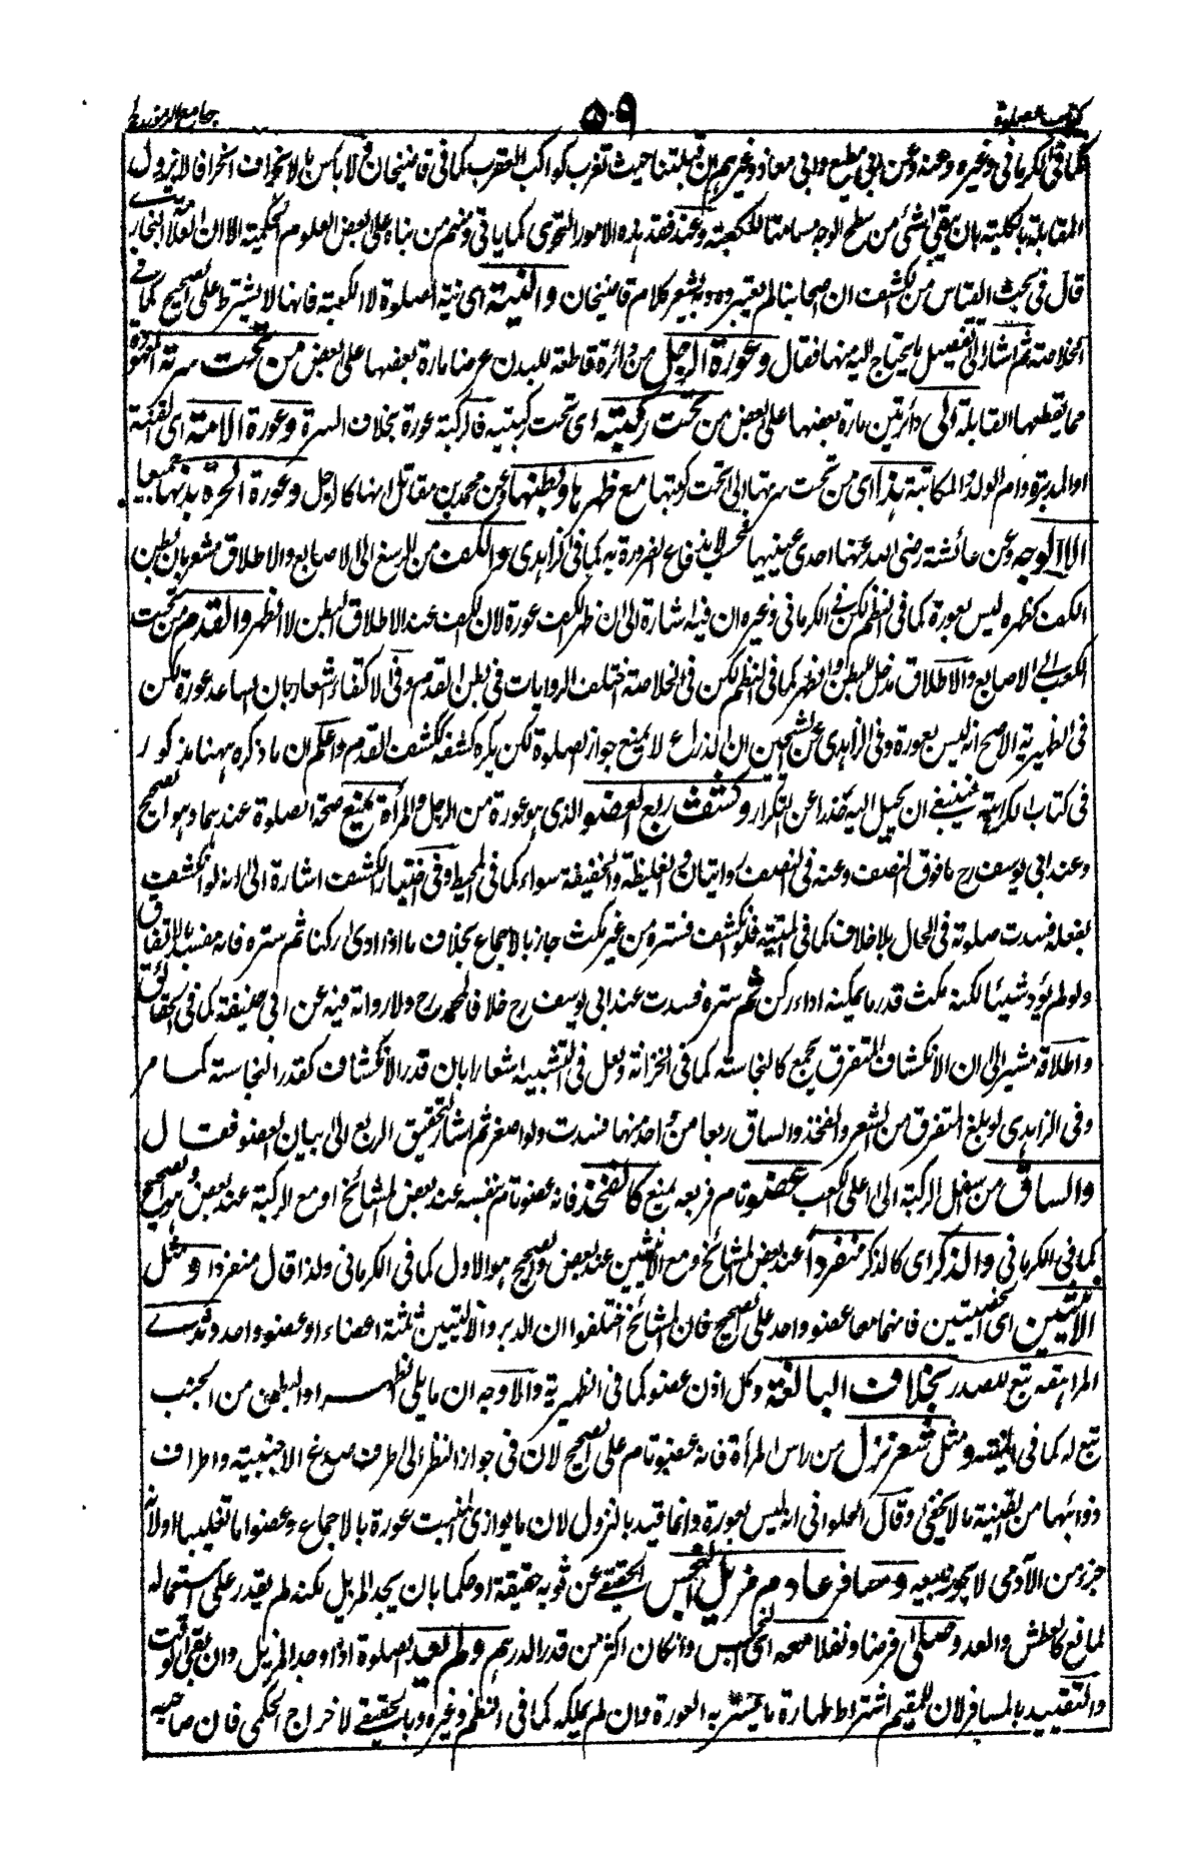 كتاب الصلوة
٥٠٩
جامع الرموز
كما فى الكرمانى وغيره وعنه وعن ابى مطيع وابى معاذ وغيرهم ان قبلتنا حيث تغرب كواكب العقرب كما فى قاضيخان فلا باس بالانحراف انحرافا لا يزول
المقابلة بالكلية بان يبقى شئ من سطح الوجه مسامتا للكعبة وعند فقد هذه الامور التحرى كما ياتى ومنهم من بناه على بعض العلوم الحكمية الا ان العلامة البخارى
قال فى بحث القياس من الكشف ان اصحابنا لم يعتبروه وبه يشعر كلام قاضيخان والنية اى نية الصلوة لا الكعبة فانها لا يشترط على الصحيح كما فى
الخلاصة ثم اشار الى تفصيل ما يحتاج اليه منها فقال وعورة الرجل من دائرة قاطعة للبدن عرضا مارة بعضها على بعض من تحت سرته
مما يقطعها القابلة الى دائرتين مارة بعضها على بعض من تحت ركبته اى تحت ركبتيه فالركبة عورة بخلاف السرة وعورة الامة اى القنة
او المدبرة وام الولد والمكاتبة هذا اى من تحت سرتها الى تحت ركبتها مع ظهرها وبطنها وعن محمد بن مقاتل انها كالرجل وعورة الحرة بدنها جميعا
الا الوجه وعن عائشة رضى الله عنها احدى عينيها فحسب لاندفاع الضرورة به كما فى الزاهدى والكف من الرسغ الى الاصابع والاطلاق مشعر بان بطن
الكف كظهره ليس بعورة كما فى النظم لكن فى الكرمانى وغيره ان فيه اشارة الى ان ظهر الكف عورة لان الكف عند الاطلاق البطن لا الظهر والقدم من تحت
الكعب الى الاصابع والاطلاق مدخل للبطن والظهر كما فى النظم لكن فى الخلاصة اختلف الروايات فى بطن القدم وفى الاكتفاء اشعار بان الساعد عورة لكن
فى الظهيرية الاصح انه ليس بعورة وفى الزاهدى عن الشيخين ان الذراع لا يمنع جواز الصلوة لكن يكره كشفه ككشف القدم واعلم ان ما ذكره ههنا مذكور
فى كتاب الكراهية فينبغى ان يحيل اليه حذرا عن التكرار وكشف ربع العضو الذى هو عورة من الرجل والمرأة يمنع صحة الصلوة عندهما وهو الصحيح
وعند ابى يوسف رح ما فوق النصف وعنه فى النصف روايتان والغليظة والخفيفة سواء كما فى المحيط وفى اختيار الكشف اشارة الى انه لو انكشف
بفعله فسدت صلوته فى الحال بلا خلاف كما فى المنية فلو انكشف فستره من غير مكث جاز بالاجماع بخلاف ما اذا ادى ركنا ثم ستره فانه مفسد بالاتفاق
ولو لم يؤد شيئا لكنه مكث قدر ما يمكنه اداء ركن ثم ستره فسدت عند ابى يوسف رح خلافا لمحمد رح ولا رواية فيه عن ابى حنيفة كما فى الحقائق
واطلاقه مشير الى ان الانكشاف المتفرق يجمع كالنجاسة كما فى الخزانة ولعل فى التشبيه اشعارا بان قدر الانكشاف كقدر النجاسة كما مر
وفى الزاهدى لو بلغ المتفرق من الشعر والفخذ والساق ربعا من واحد منها فسدت ولو اصغر ثم اشار لتحقيق الربع الى بيان العضو فقال
والساق من سفل الركبة الى اعلى الكعب عضو تام فربعه يمنع كالفخذ فانه عضو تام بنفسه عند بعض المشائخ او مع الركبة عند بعض وهو الصحيح
كما فى الكرمانى والذكر اى كالذكر منفردا عند بعض المشائخ ومع الانثيين عند بعض والصحيح هو الاول كما فى الكرمانى ولذا قال منفردا ومثل
الانثيين اى الخصيتين فانهما معا عضو واحد على الصحيح فان المشائخ اختلفوا ان الدبر والاليتين ثلثة اعضاء او عضو واحد وثدى
المراهقة تبع للصدر بخلاف البالغة وكل اذن عضو كما فى الظهيرية والاوجه ان ما يلى الظهر او البطن من الجنب
تبع له كما فى المنية ومثل شعر نزل من راس المرأة فانه عضو تام على الصحيح لان فى جواز النظر الى طرف صدغ الاجنبية واطراف
ذوائبها من الفتنة ما لا يخفى وقال الحلوانى انه ليس بعورة وانما قيد بالنزول لان ما يوازى المنبت عورة بالاجماع وعضو اما تغليبا او لانه
جزء من الآدمى لا يجوز بيعه ومسافر عادم مزيل النجس الحقيقى عن ثوبه حقيقة او حكما بان يجد المزيل لكنه لم يقدر على استعماله
لمانع كالعطش والعدو صلى فرضا ونفلا معه اى النجس وان كان اكثر من قدر الدرهم ولم يعد الصلوة اذا وجد المزيل وان بقى الوقت
والتقييد بالمسافر لان للمقيم اشتراط طهارة ما يستر به العورة وان لم يملكه كما فى النظم وغيره وبالحقيقى لاخراج الحكمى فان صاحبه